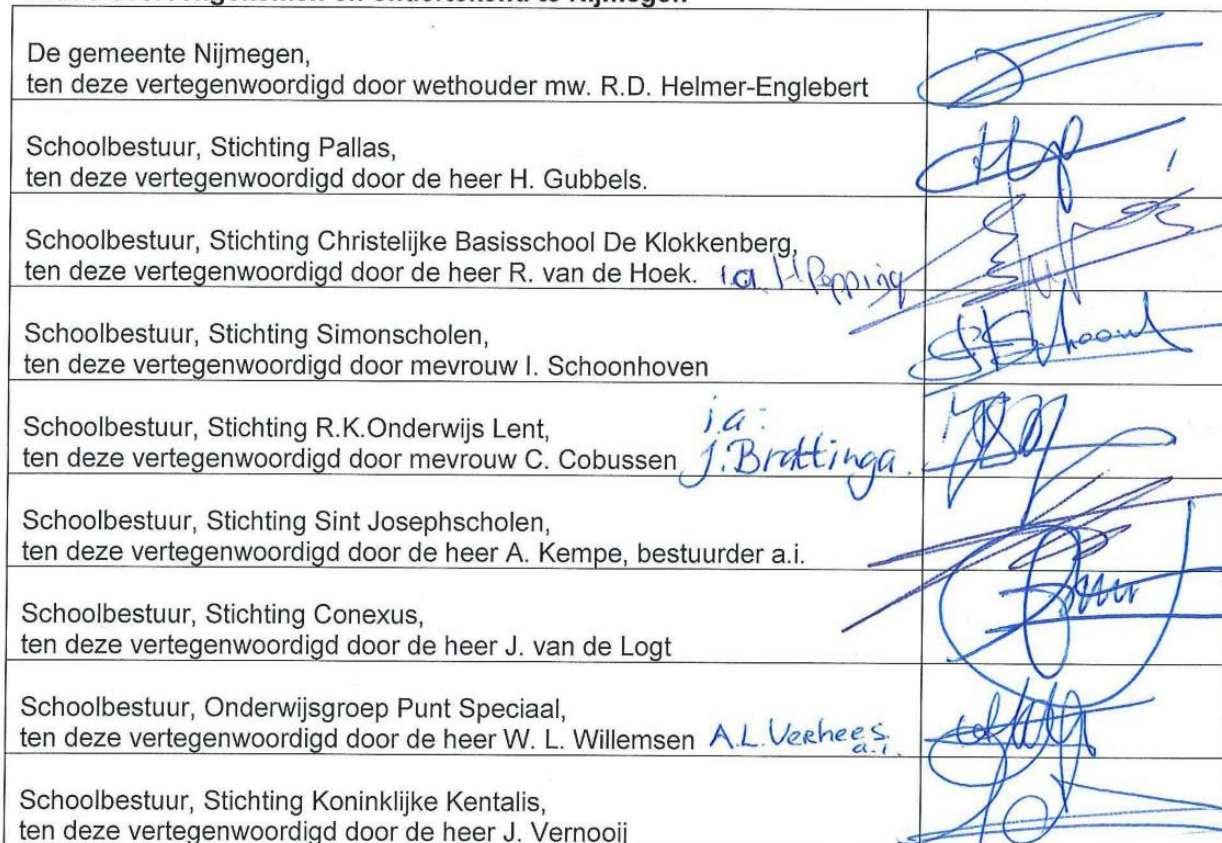 De gemeente Nijmegen,
ten deze vertegenwoordigd door wethouder mw. R.D. Helmer-Englebert
Schoolbestuur, Stichting Pallas,
ten deze vertegenwoordigd door de heer H. Gubbels.
Schoolbestuur, Stichting Christelijke Basisschool De Klokkenberg,
ten deze vertegenwoordigd door de heer R. van de Hoek. i.a. H Popping
Schoolbestuur, Stichting Simonscholen,
ten deze vertegenwoordigd door mevrouw I. Schoonhoven
Schoolbestuur, Stichting R.K.Onderwijs Lent, j.a.
ten deze vertegenwoordigd door mevrouw C. Cobussen J. Brattinga.
Schoolbestuur, Stichting Sint Josephscholen,
ten deze vertegenwoordigd door de heer A. Kempe, bestuurder a.i.
Schoolbestuur, Stichting Conexus,
ten deze vertegenwoordigd door de heer J. van de Logt
Schoolbestuur, Onderwijsgroep Punt Speciaal,
ten deze vertegenwoordigd door de heer W. L. Willemsen A.L. Verhees.
a.i.
Schoolbestuur, Stichting Koninklijke Kentalis,
ten deze vertegenwoordigd door de heer J. Vernooij